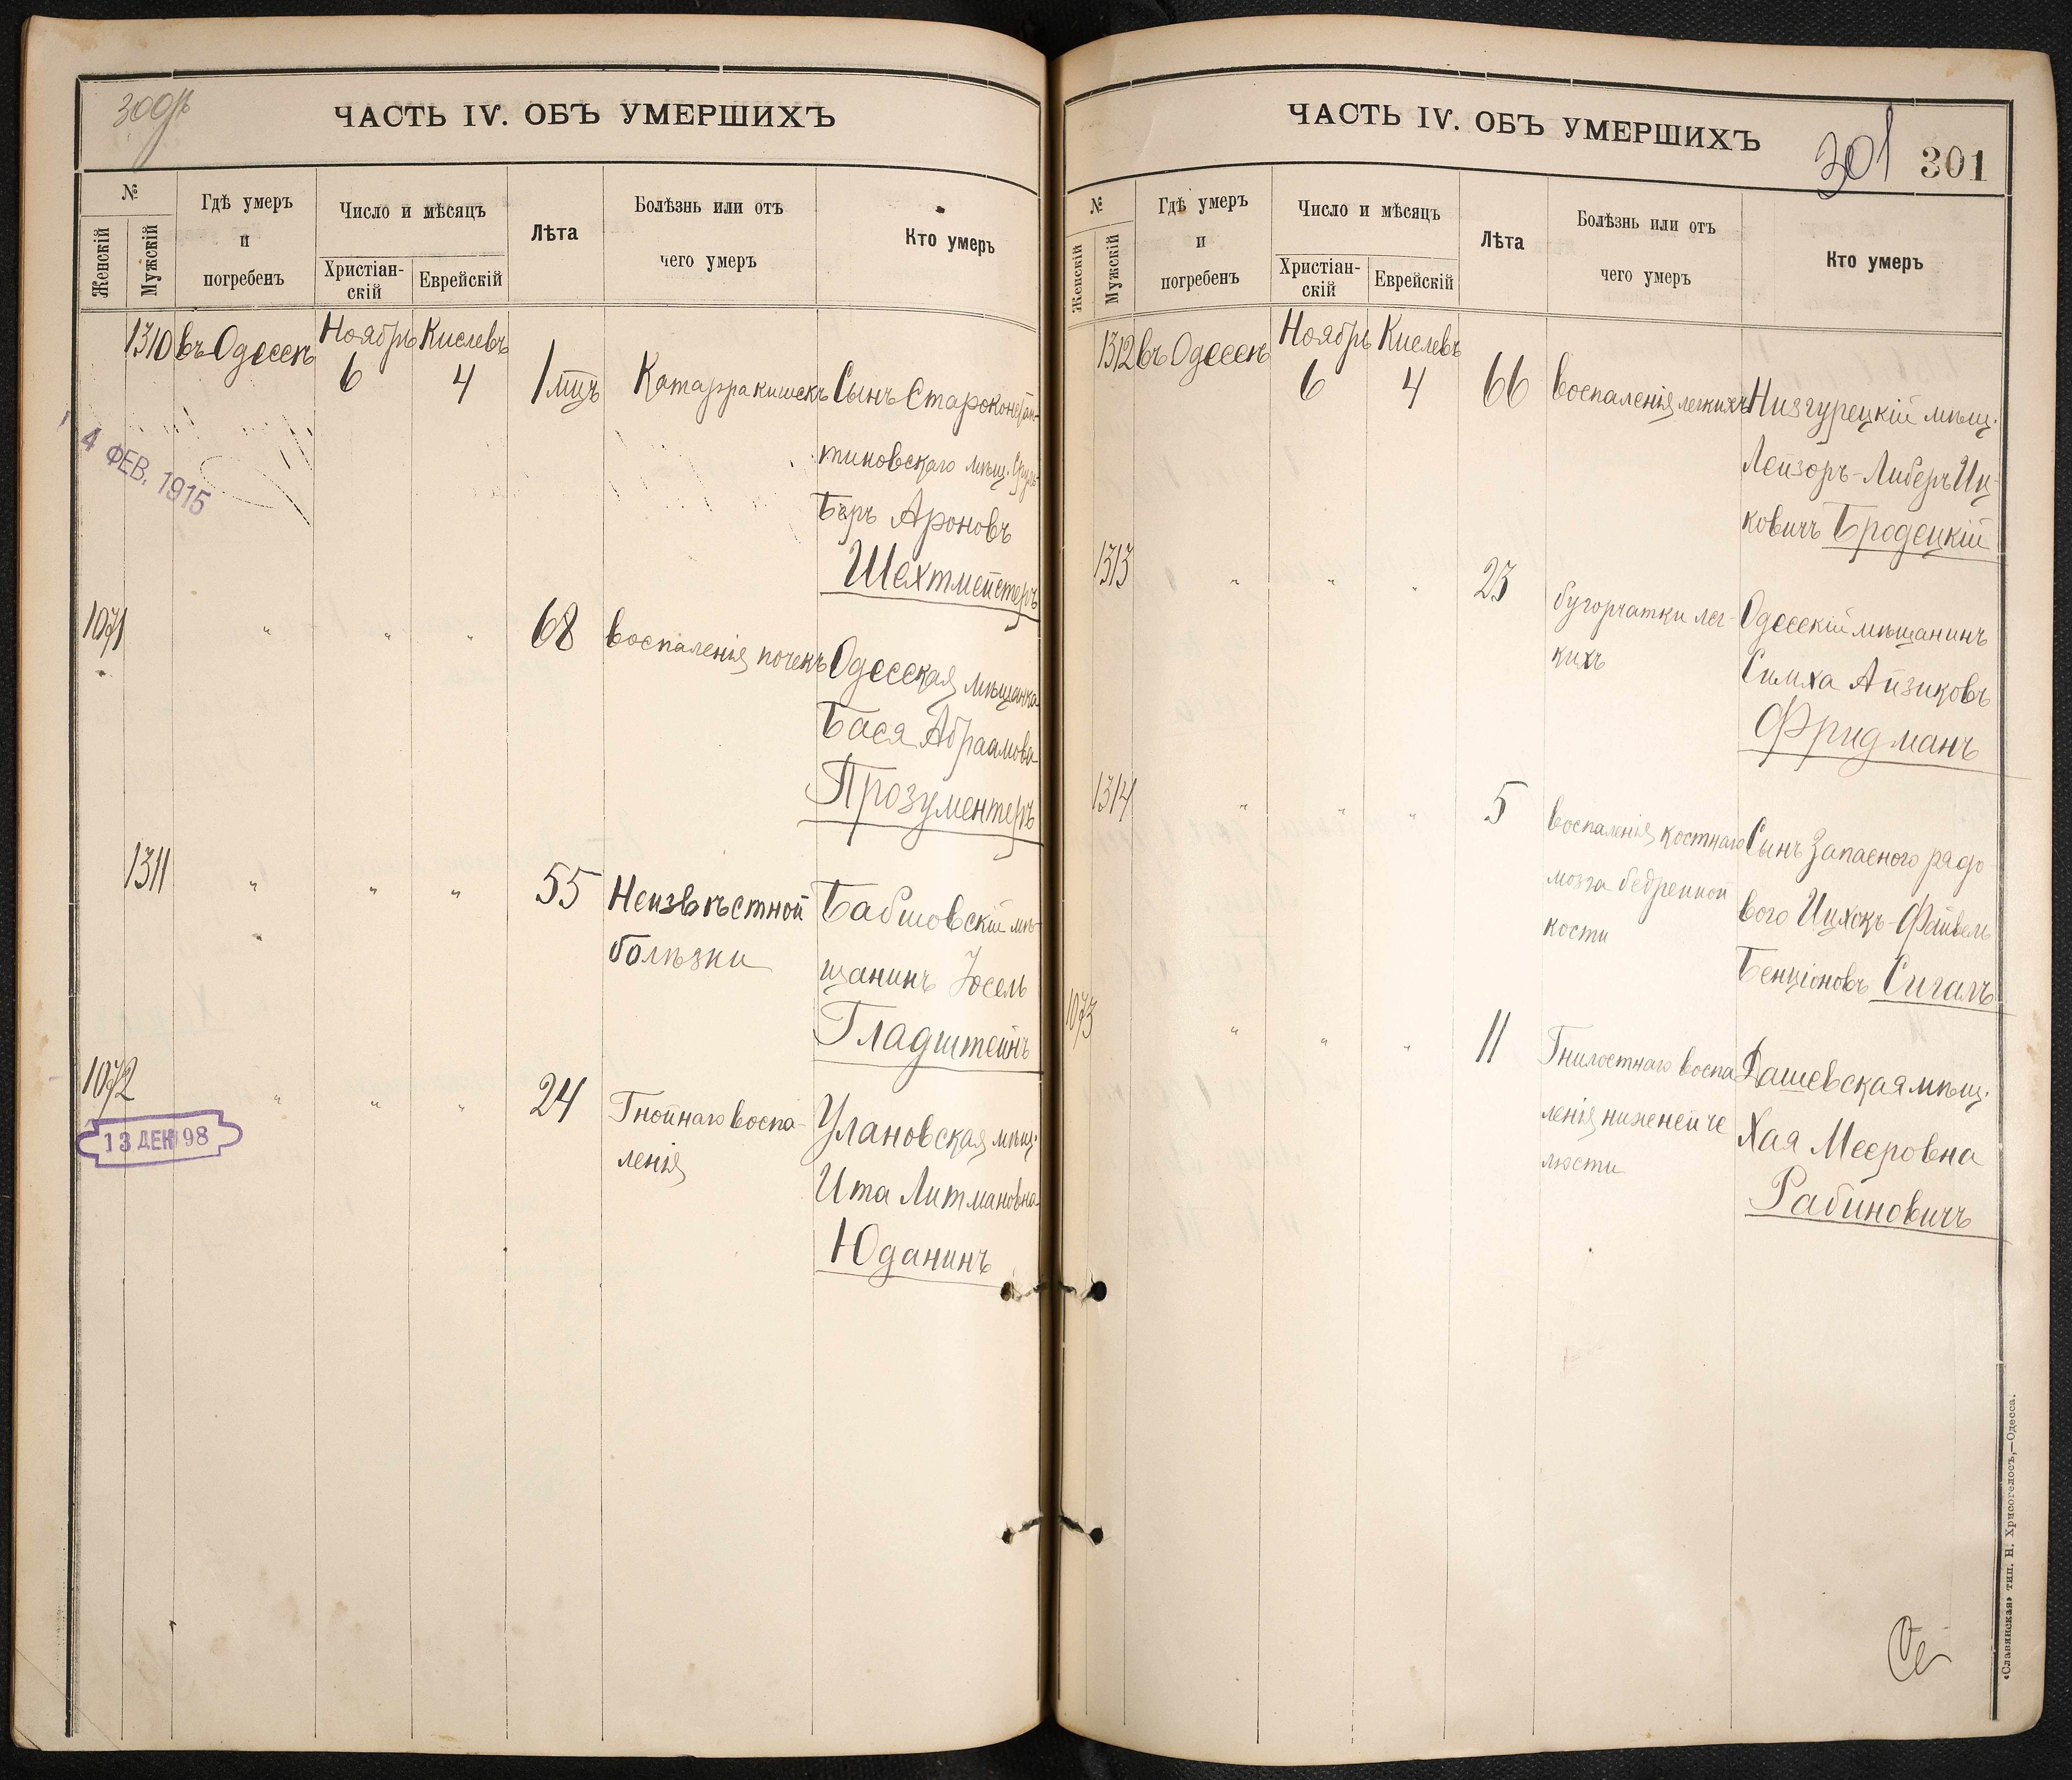 300
ЧАСТЬ IV. ОБЪ УМЕРШИХЪ
№
Женскій
Мужскій
Гдѣ умеръ
и
погребенъ
Число и мѣсяцъ
Христіан-
скій
Еврейскій
Лѣта
Болѣзнь или отъ
чего умеръ
Кто умеръ
1310 въ Одессѣ Ноябрь Кислевъ
6 4 1 мцъ Катарра кишекъ Сынъ Староконстан-
тиновскаго мѣщ. Сруль-
Беръ Ароновъ
Шехтмейстеръ
4 ФЕВ. 1915
1071 " " " 68 воспаленія почекъ Одесская мѣщанка
Бася Абрамова
Прозументеръ
1311 " " " 55 Неизвѣстной Бабшовскій мѣ-
болѣзни щанинъ Іосель
Гладштейнъ
1072 " " " 24 Гнойнаго воспа- Улановская мѣщ.
ленія Ита Литмановна
Юданинъ
13 ДЕК 98
ЧАСТЬ IV. ОБЪ УМЕРШИХЪ
301 301
№
Женскій
Мужскій
Гдѣ умеръ
и
погребенъ
Число и мѣсяцъ
Христіан-
скій
Еврейскій
Лѣта
Болѣзнь или отъ
чего умеръ
Кто умеръ
1312 въ Одессѣ Ноябрь Кислевъ
6 4 66 воспаленія легкихъ Низгурецкій мѣщ.
Лейзоръ-Либеръ Иц-
ковичъ Бродецкій
1313 " " " 23 бугорчатки лег- Одесскій мѣщанинъ
кихъ Симха Айзиковъ
Фридманъ
1314 " " " 5 воспаленія костнаго Сынъ Запасного рядо
мозга бедренной вого Ицхокъ-Файвель
кости Бенціоновъ Сигалъ
1073 " " " 11 Гнилостнаго воспа Дашевская мѣщ.
ленія нижней че Хая Мееровна
люсти Рабиновичъ
«Славянская» тип. Н. Хрисогелосъ,—Одесса.